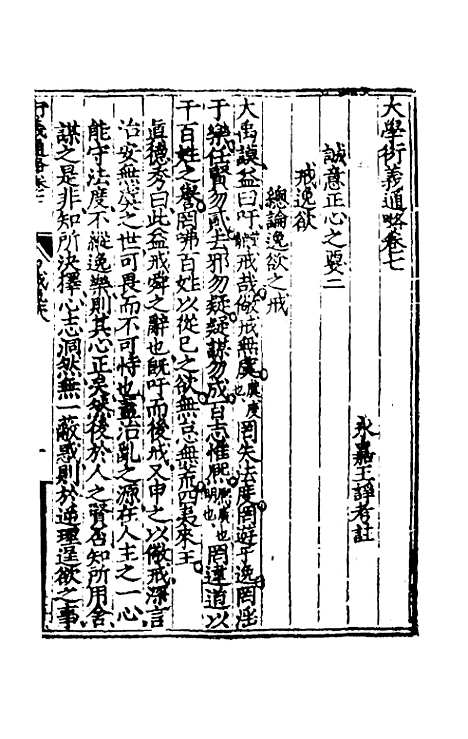 大學衍義通略卷七
永嘉王諍考註
誠意正心之要二
戒逸欲
總論逸欲之戒
大禹謨益曰吁戒哉儆戒無虞虞度也罔失法度罔遊于逸罔淫
于樂任賢勿貳去邪勿疑疑謀勿成百志惟熙熙廣也明也罔違道以
干百姓之譽罔咈百姓以從己之欲無怠無荒四夷來王
真德秀曰此益戒舜之辭也既吁而後戒又申之以儆戒深言
治安無虞之世可畏而不可恃也蓋治亂之源在人主之一心
能守法度不縱逸樂則其心正矣然後於人之賢否知所用舍
謀之是非知所決擇心志洞然無一蔽惑則於逆理逞欲之事